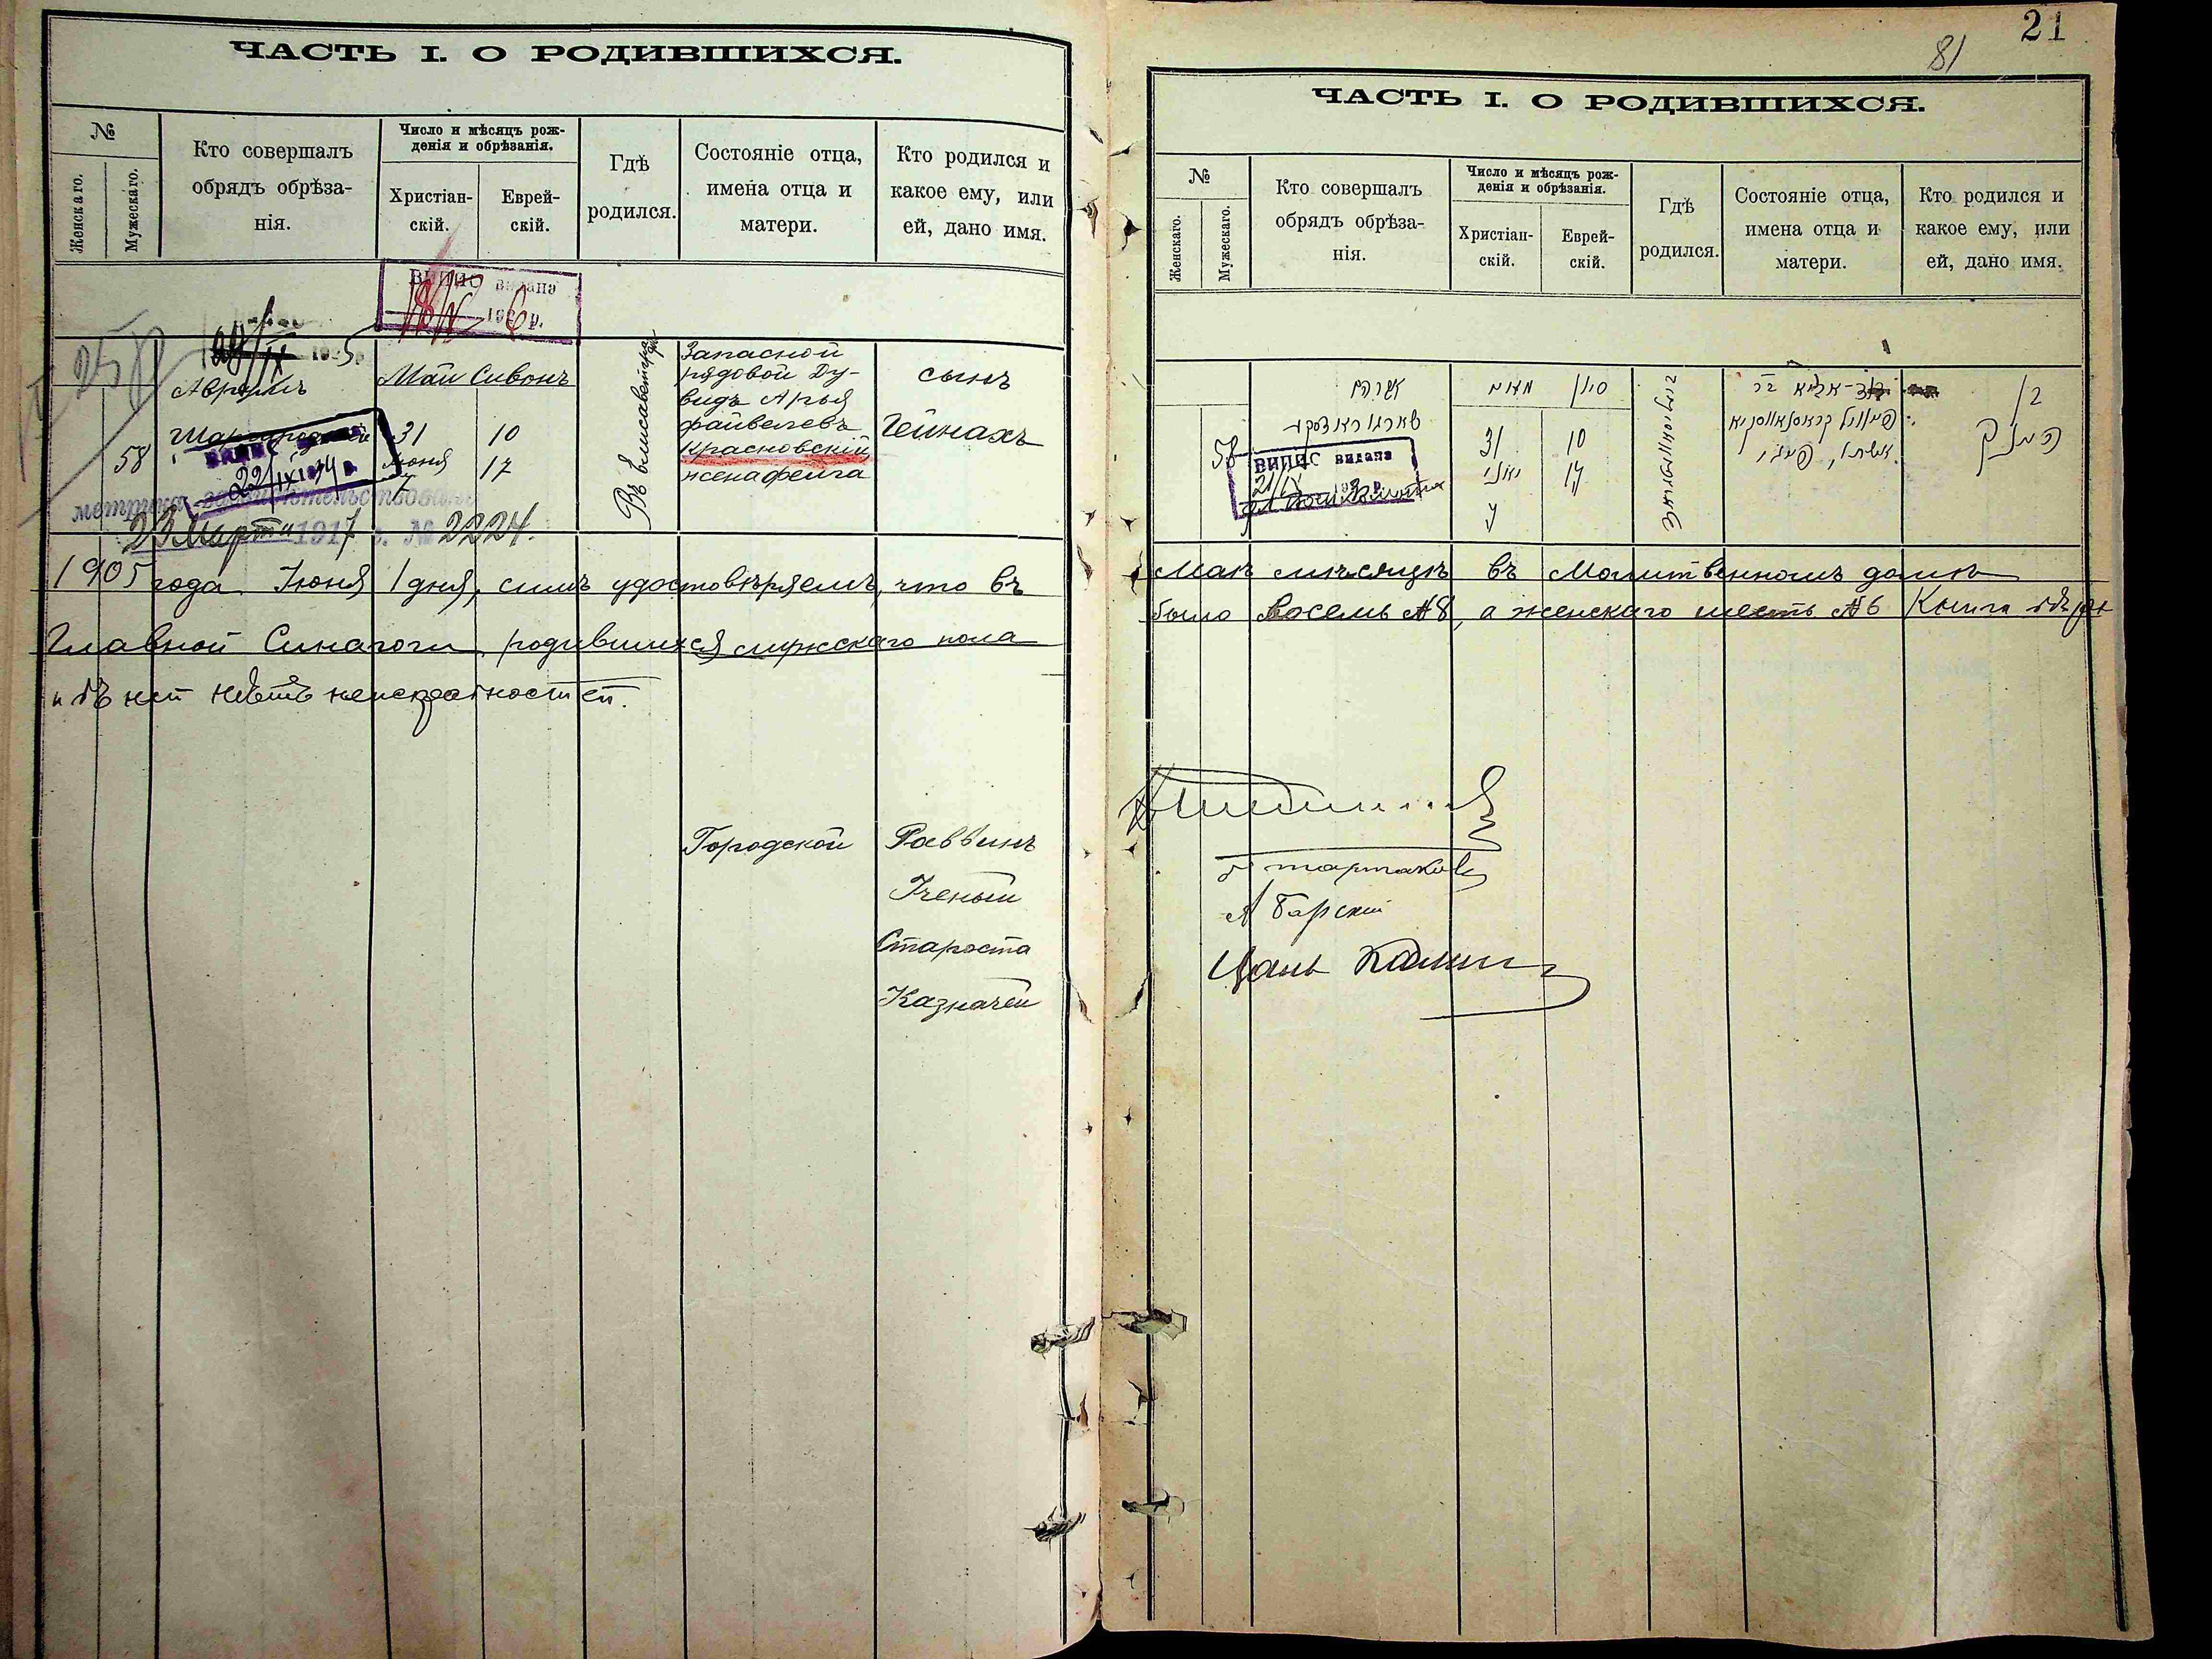 ЧАСТЬ I. О РОДИВШИХСЯ.
№
Женскаго.
Мужескаго.
Кто совершалъ
обрядъ обрѣза-
нія.
Число и мѣсяцъ рож-
денія и обрѣзанія.
Христіан-
скій.
Еврей-
скій.
Гдѣ
родился.
Состояніе отца,
имена отца и
матери.
Кто родился и
какое ему, или
ей, дано имя.
58
Аврумъ
Май Сивонъ
31 10
Июня 17
7
Въ Елисаветградѣ
Запасной
рядовой Ду-
видъ Арья
Файвелевъ
Красновскій,
жена Фейга
сынъ
Гейнахъ
22/IX 1934 р.
23 Марта 1917 г. № 2224.
1905 года Іюня 1 дня, симъ удостовѣряемъ, что въ
Главной Синагоги родившихся мужскаго пола
и въ ней нѣтъ неисправностей.
Городской Раввинъ
Ученый
Староста
Казначей
21
81
ЧАСТЬ I. О РОДИВШИХСЯ.
№
Женскаго.
Мужескаго.
Кто совершалъ
обрядъ обрѣза-
нія.
Число и мѣсяцъ рож-
денія и обрѣзанія.
Христіан-
скій.
Еврей-
скій.
Гдѣ
родился.
Состояніе отца,
имена отца и
матери.
Кто родился и
какое ему, или
ей, дано имя.
58
אברהם
סיון
31 10
יוני 17
בן
ВИПИС видана
Маѣ мѣсяцѣ въ Молитвенномъ домѣ
было восемь №8, а женскаго шесть №6 Книга
А Барскій